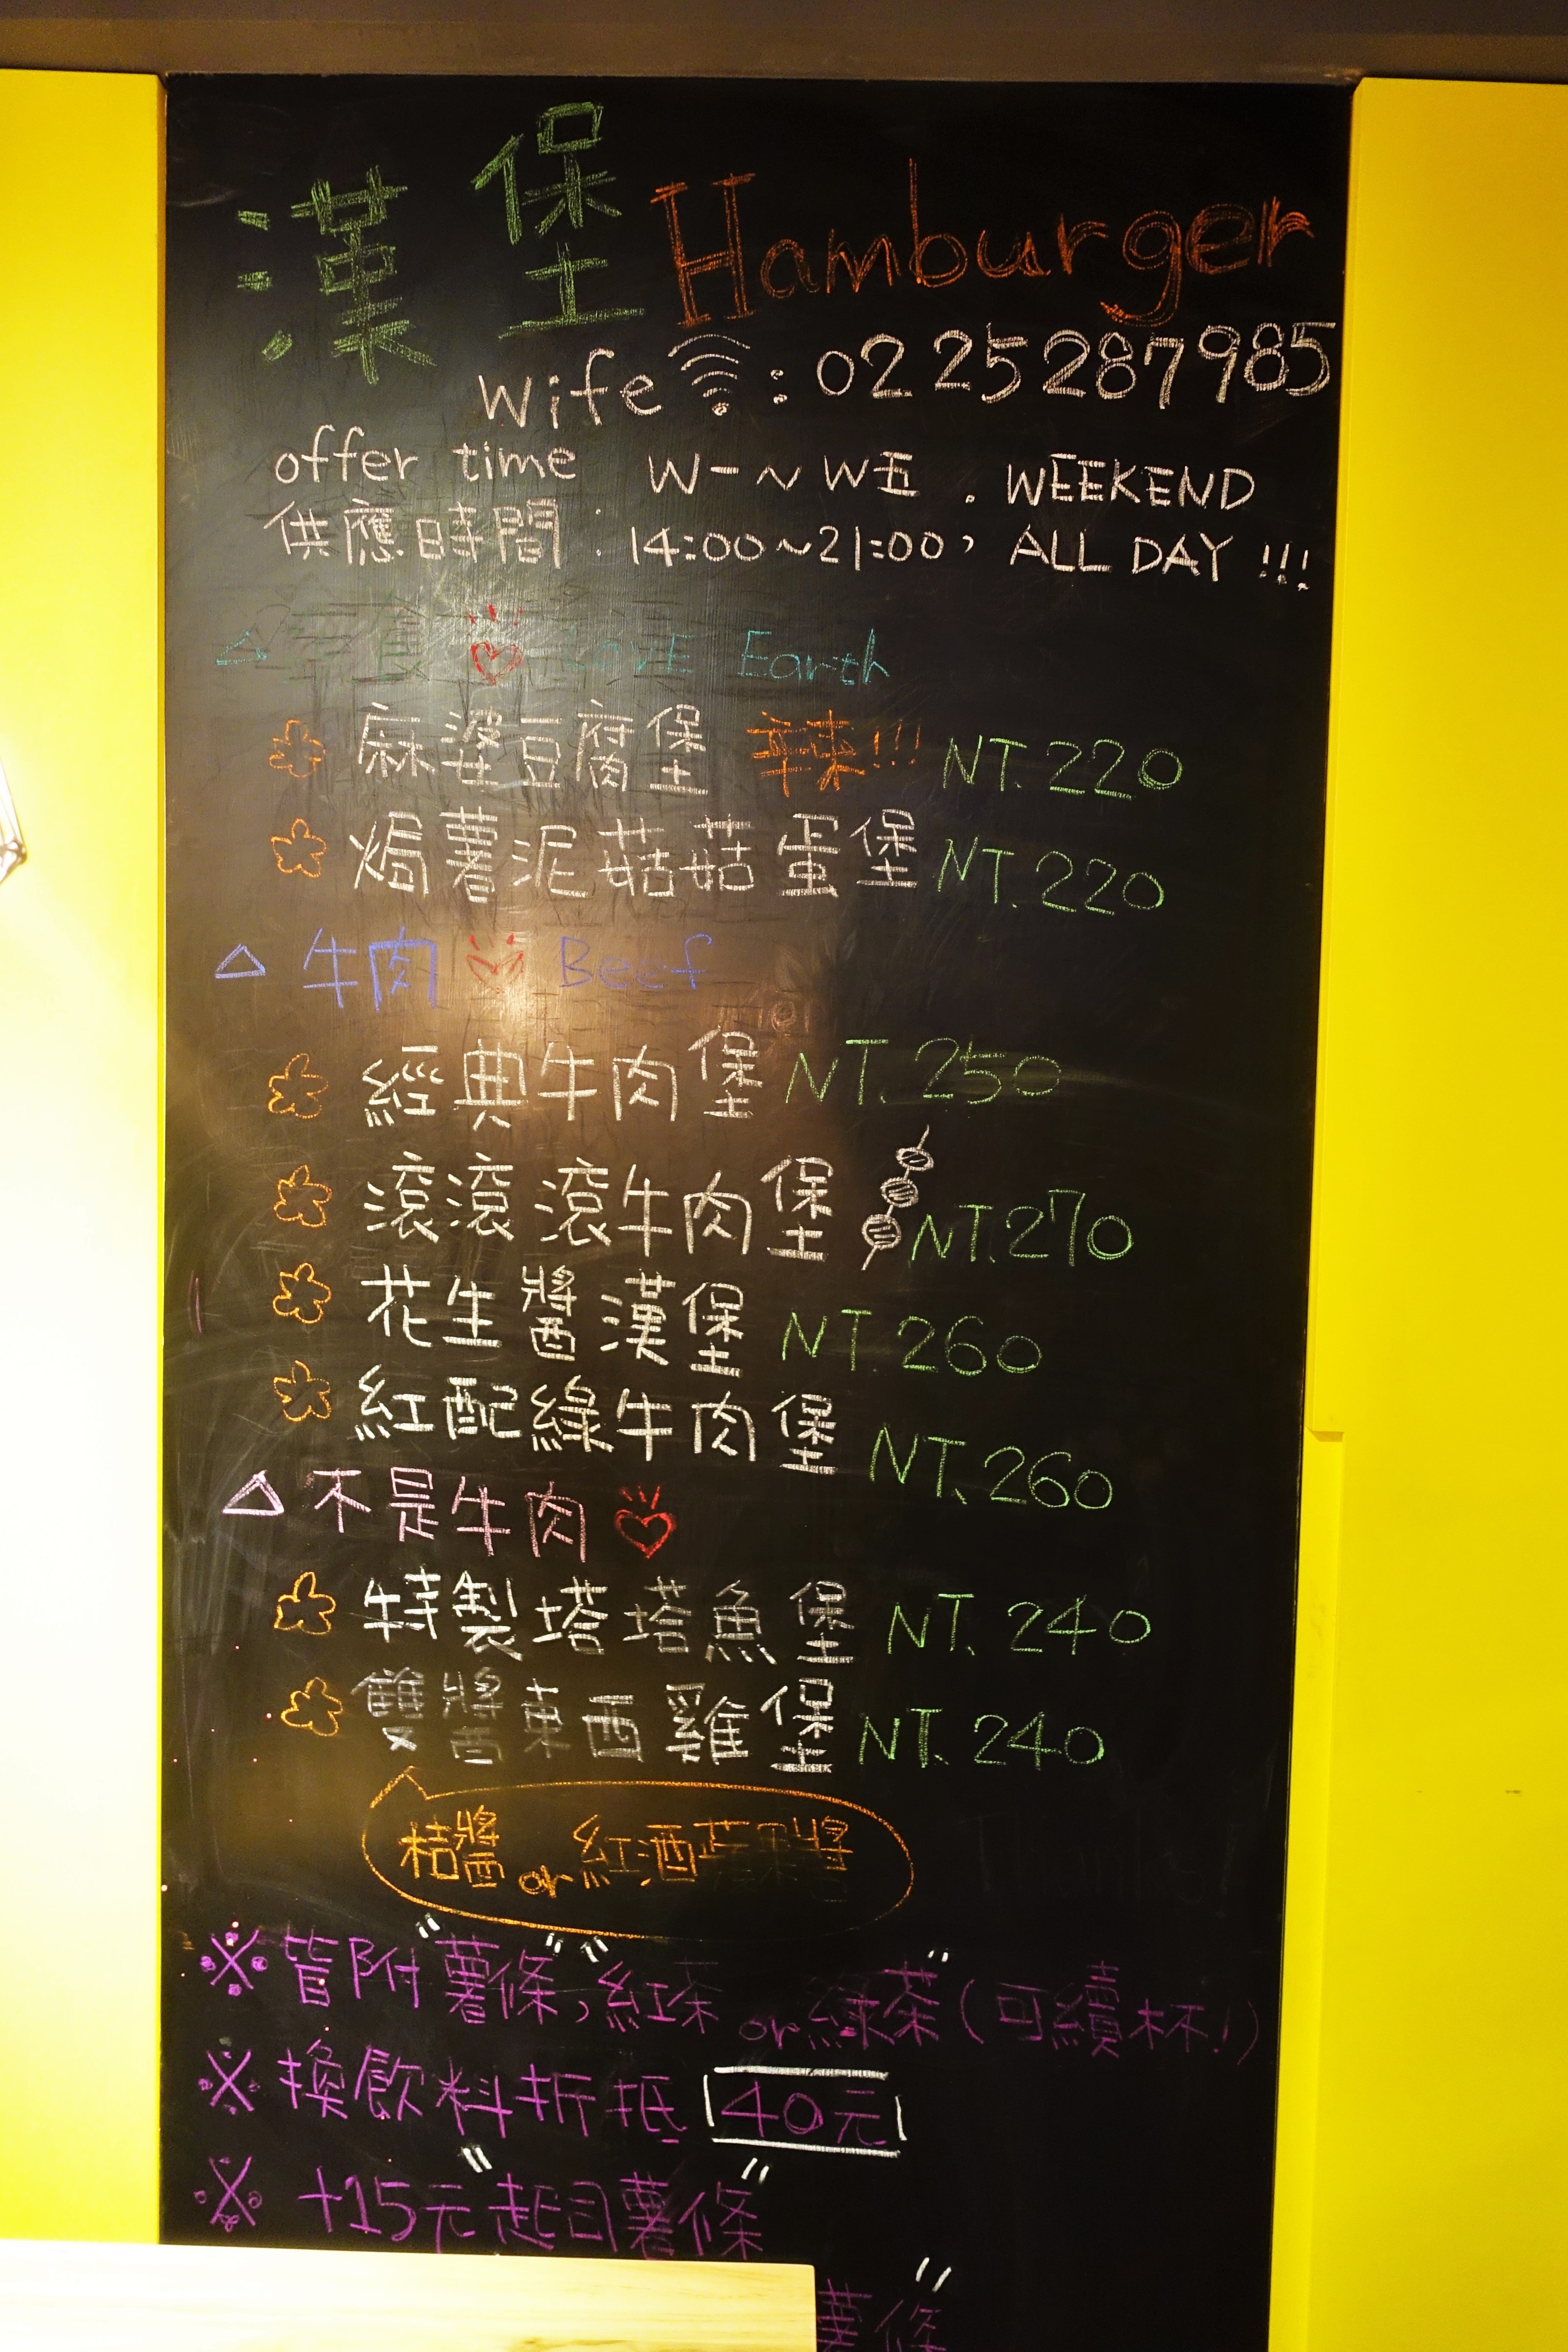 漢堡 Hamburger
wife : 0225287985
offer time W一~W五 . WEEKEND
供應時間 : 14:00~21:00, ALL DAY !!!
△ 食 LOVE Earth
麻婆豆腐堡 辛辣!!! NT.220
焗薯泥菇菇蛋堡 NT.220
△ 牛肉 Beef
經典牛肉堡 NT.250
滾滾滾牛肉堡 NT.270
花生醬漢堡 NT.260
紅配綠牛肉堡 NT.260
△ 不是牛肉
特製塔塔魚堡 NT.240
雙醬東西雞堡 NT.240
桔醬 or 紅酒蘋果醬
※ 皆附"薯條","紅茶 or 綠茶"(可續杯!)
※ 換飲料折抵 40元
※ +15元"起司薯條"
薯條"